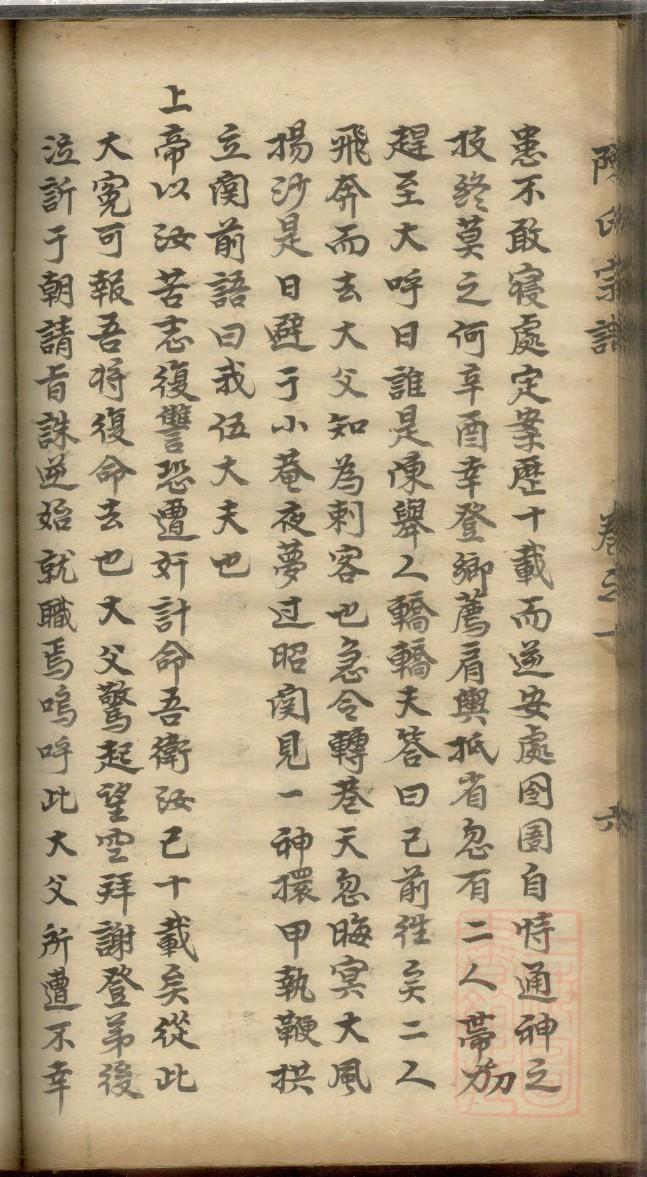 陳氏宗譜 卷之一 六
患不敢寢處定案歷十載而逆安處囹圄自恃通神之
技終莫之何辛酉幸登鄉薦肩輿抵省忽有二人帶刃
趕至大呼曰誰是陳舉人轎轎夫答曰已前徃矣二人
飛奔而去大父知為刺客也急令轉巷天忽晦冥大風
揚沙是日避于小菴夜夢过昭関見一神擐甲執鞭拱
立関前語曰我伍大夫也
上帝以汝苦志復讐恐遭奸計命吾衛汝已十載矣從此
大寃可報吾将復命去也大父驚起望空拜謝登苐後
泣訴于朝請旨誅逆始就職焉嗚呼此大父所遭不幸